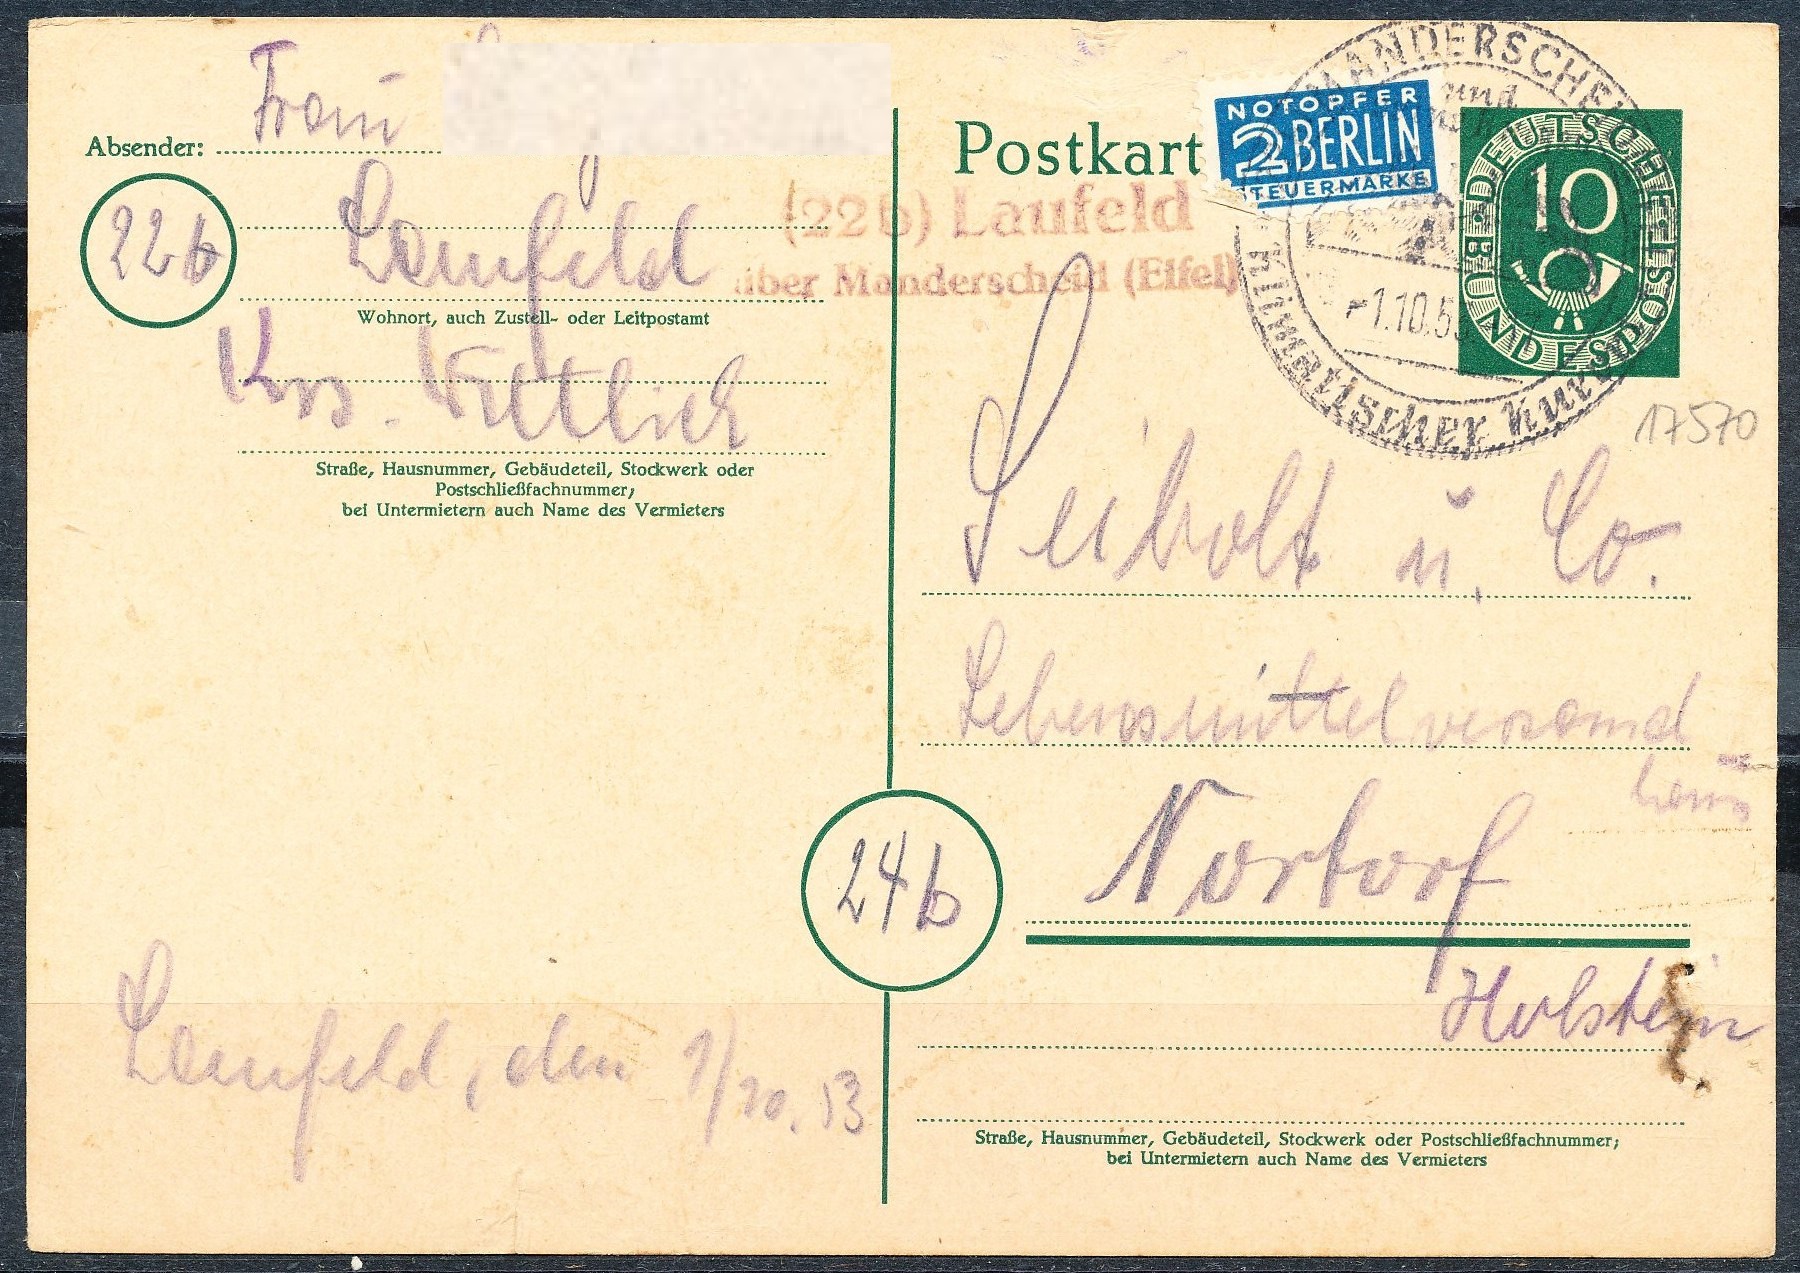 Absender: Frau
22b
Laufeld
Wohnort, auch Zustell- oder Leitpostamt
Krs. Wittlich
Straße, Hausnummer, Gebäudeteil, Stockwerk oder
Postschließfachnummer;
bei Untermietern auch Name des Vermieters
Laufeld, den 1/10. 53
Postkart
(22b) Laufeld
über Manderscheid (Eifel)
NOTOPFER
2 BERLIN
STEUERMARKE
MANDERSCHEID
und
-1.10.5
Klimatischer Kur
DEUTSCHE BUNDESPOST
10
17570
Seibolt u. Co.
Lebensmittelversand
haus
24b
Nortorf
Holstein
Straße, Hausnummer, Gebäudeteil, Stockwerk oder Postschließfachnummer;
bei Untermietern auch Name des Vermieters